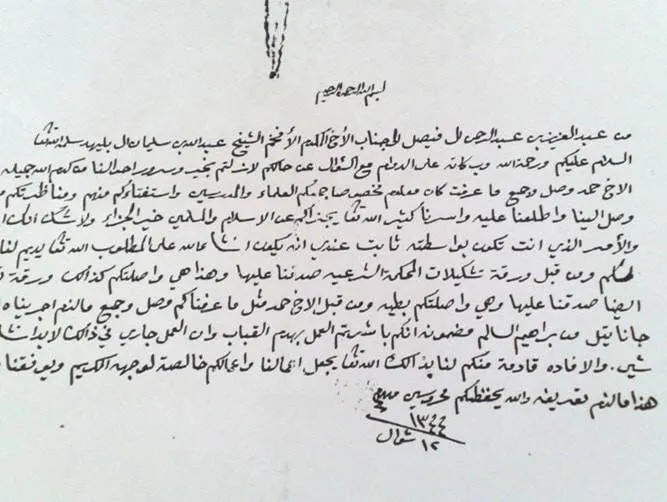 بسم الله الرحمن الرحيم
من عبد العزيز بن عبد الرحمن ال فيصل الى جناب الأخ المكرم الأفخم الشيخ عبد الله بن سليمان ال بليهد سلمه الله تعا
السلام عليكم ورحمة الله وبركاته على الدوام مع السؤال عن حالكم لا زلتم بخير وسرور احوالنا من كرم الله جميله
الاخ حمد وصل وجميع ما عرفت كان معلوم مخصوصا جمعكم العلماء والمدرسين واستفتاءكم منهم ومناظرتكم
وصل الينا واطلعنا عليه واسرنا كثير الله تعا يجزاكم عن الاسلام والمسلمين خير الجزاء ولا شك
والأمر الذي انت تكون بواسطته ثابت عندي انه يكون انشاءالله على المطلوب الله تعا يديم لنا
ومن قبل ورقة تشكيلات المحكمة الشرعيه صدقنا عليها وهذا هي واصلتكم كذالك ورقة
ايضا صدقنا عليها وهي واصلتكم بطيه ومن قبل الاخ حمد مثل ما عرفناكم وصل وجميع مالزم اجريناه
جانا بتل من براهيم السالم مضمونه انكم باشرتم العمل بهدم القباب وان العمل جاري في ذالك لا بد
شي. والافاده قادمة منكم لنا بذالك الله تعا يجعل اعمالنا واعمالكم خالصة لوجهه الكريم ويوفقنا
هذا مالزم تعريفه والله يحفظكم محروسين
١٣٤٤
١٢ شوال